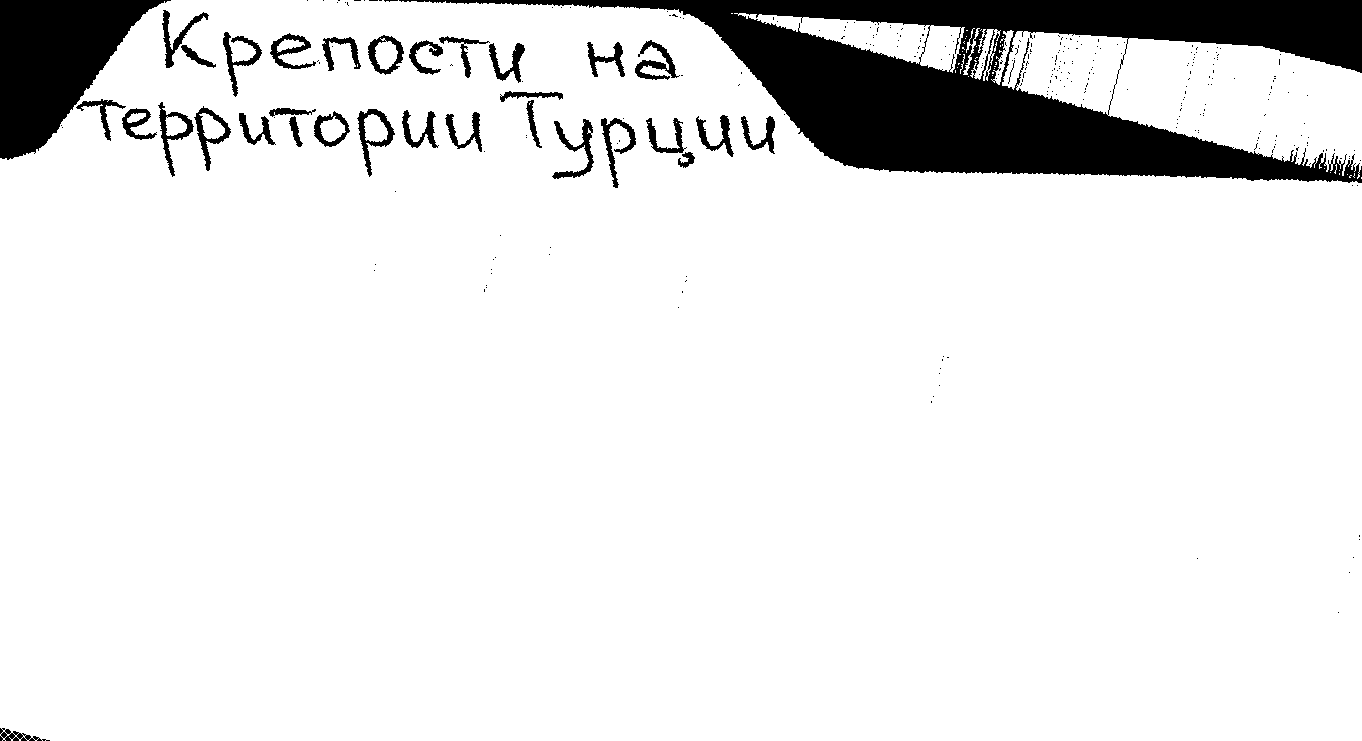 Крепости на
территории Турции